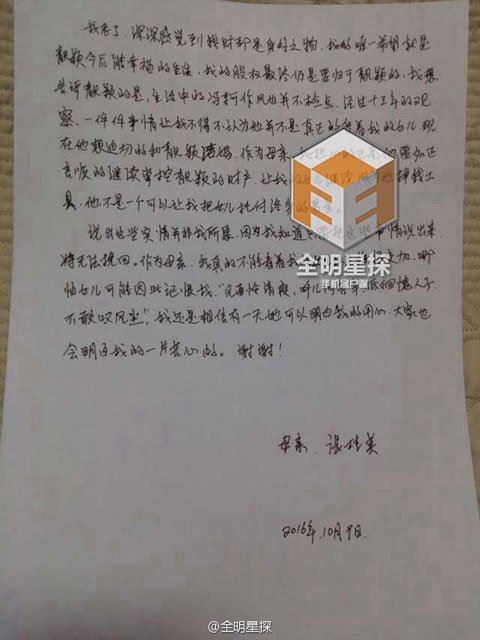 我老了，深深感觉到钱财都是身外之物，我的唯一希望就是
靓颖今后能幸福的生活，我的股权最终仍是要归于靓颖的，我想
告诉靓颖的是，生活中的冯轲作风也并不检点，经过十三年的观
察，一件件事情让我不得不认为他并不是真正的爱着我的女儿，现
在他想迫切的和靓颖结婚，作为母亲，
的继续掌控靓颖的财产，让我的女儿继续
具，他不是一个可以让我把女儿托付终身的
说出这些实情并非我所愿，因为我知道 情说出来
将无法挽回。作为母亲，我真的不能看着我 加，哪
怕女儿可能因此记恨我。
不敢叹风尘"，我还是相信有一天她可以明白我的用心，大家也
会明白我的一片苦心的。谢谢！
全明星探
手机客户端
母亲：张桂英
2016年10月9日
@全明星探